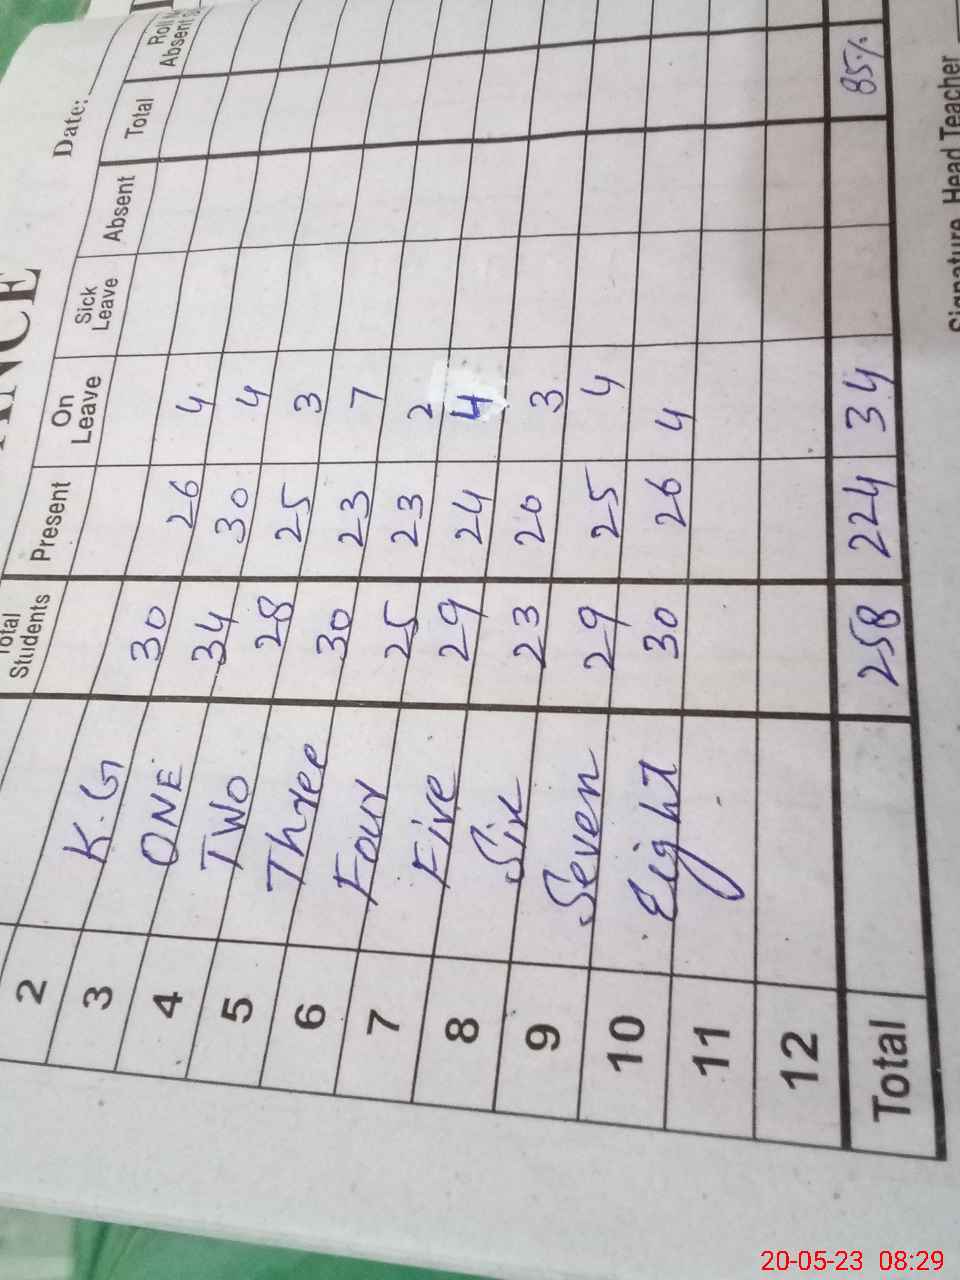 ANCE
Date:
Total Students Present On Leave Sick Leave Absent Total Roll Absent
2
3 K.G 30 26 4
4 ONE 34 30 4
5 TWO 28 25 3
6 Three 30 23 7
7 Four 25 23 2
8 Five 29 24 4
9 Six 23 20 3
10 Seven 29 25 4
11 Eight 30 26 4
12
Total 258 224 34 85%
Signature Head Teacher
20-05-23 08:29